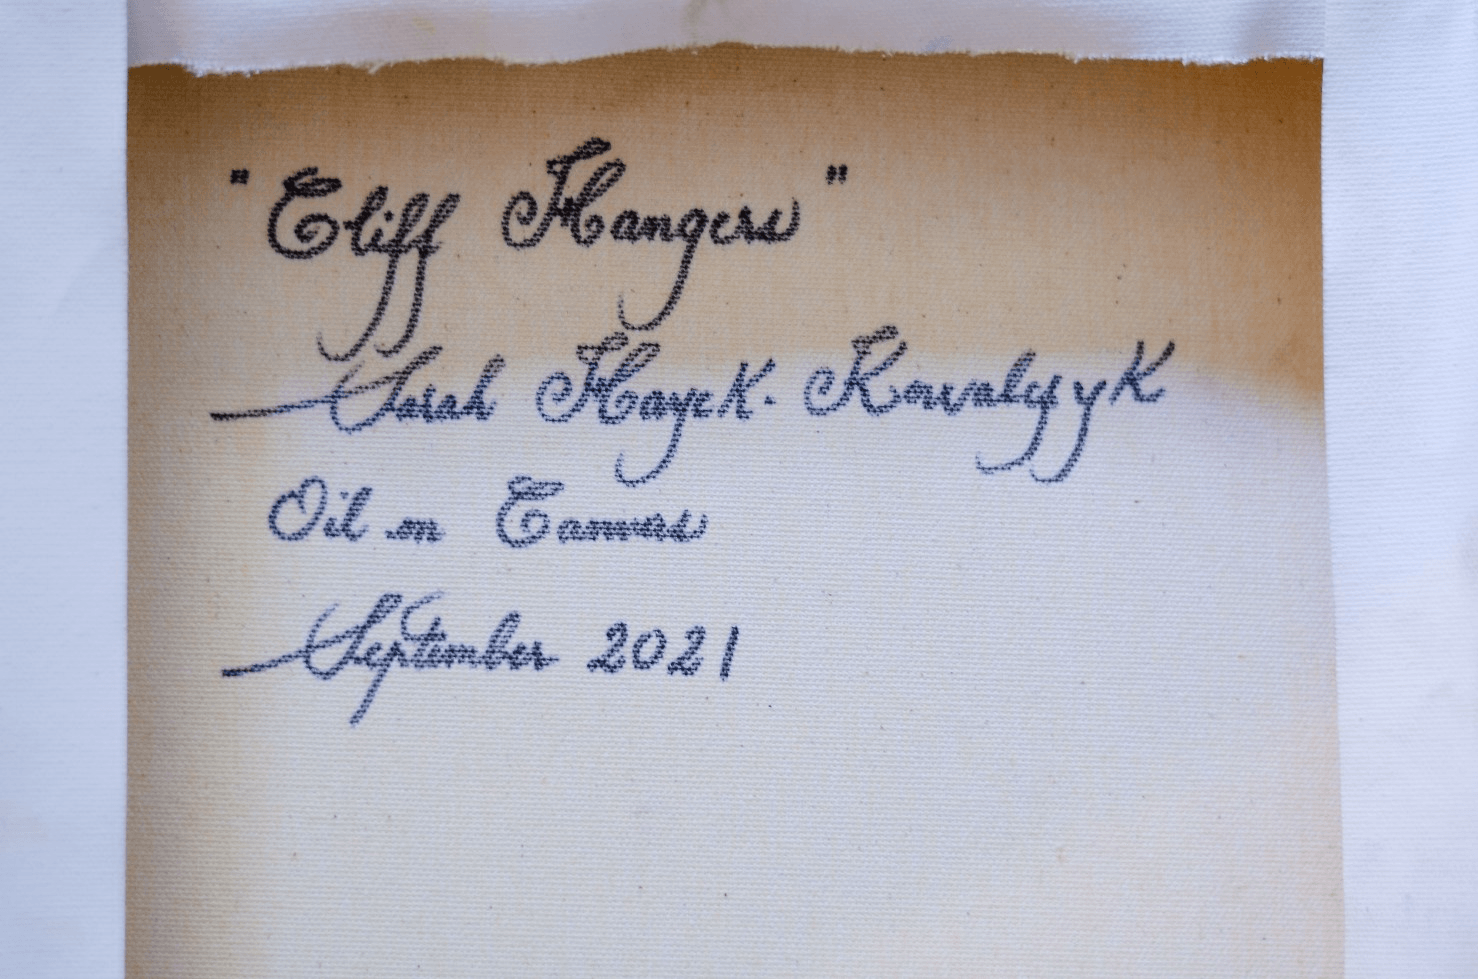 "Cliff Hangers"
Sarah Hayek-Kowalczyk
Oil on Canvas
September 2021